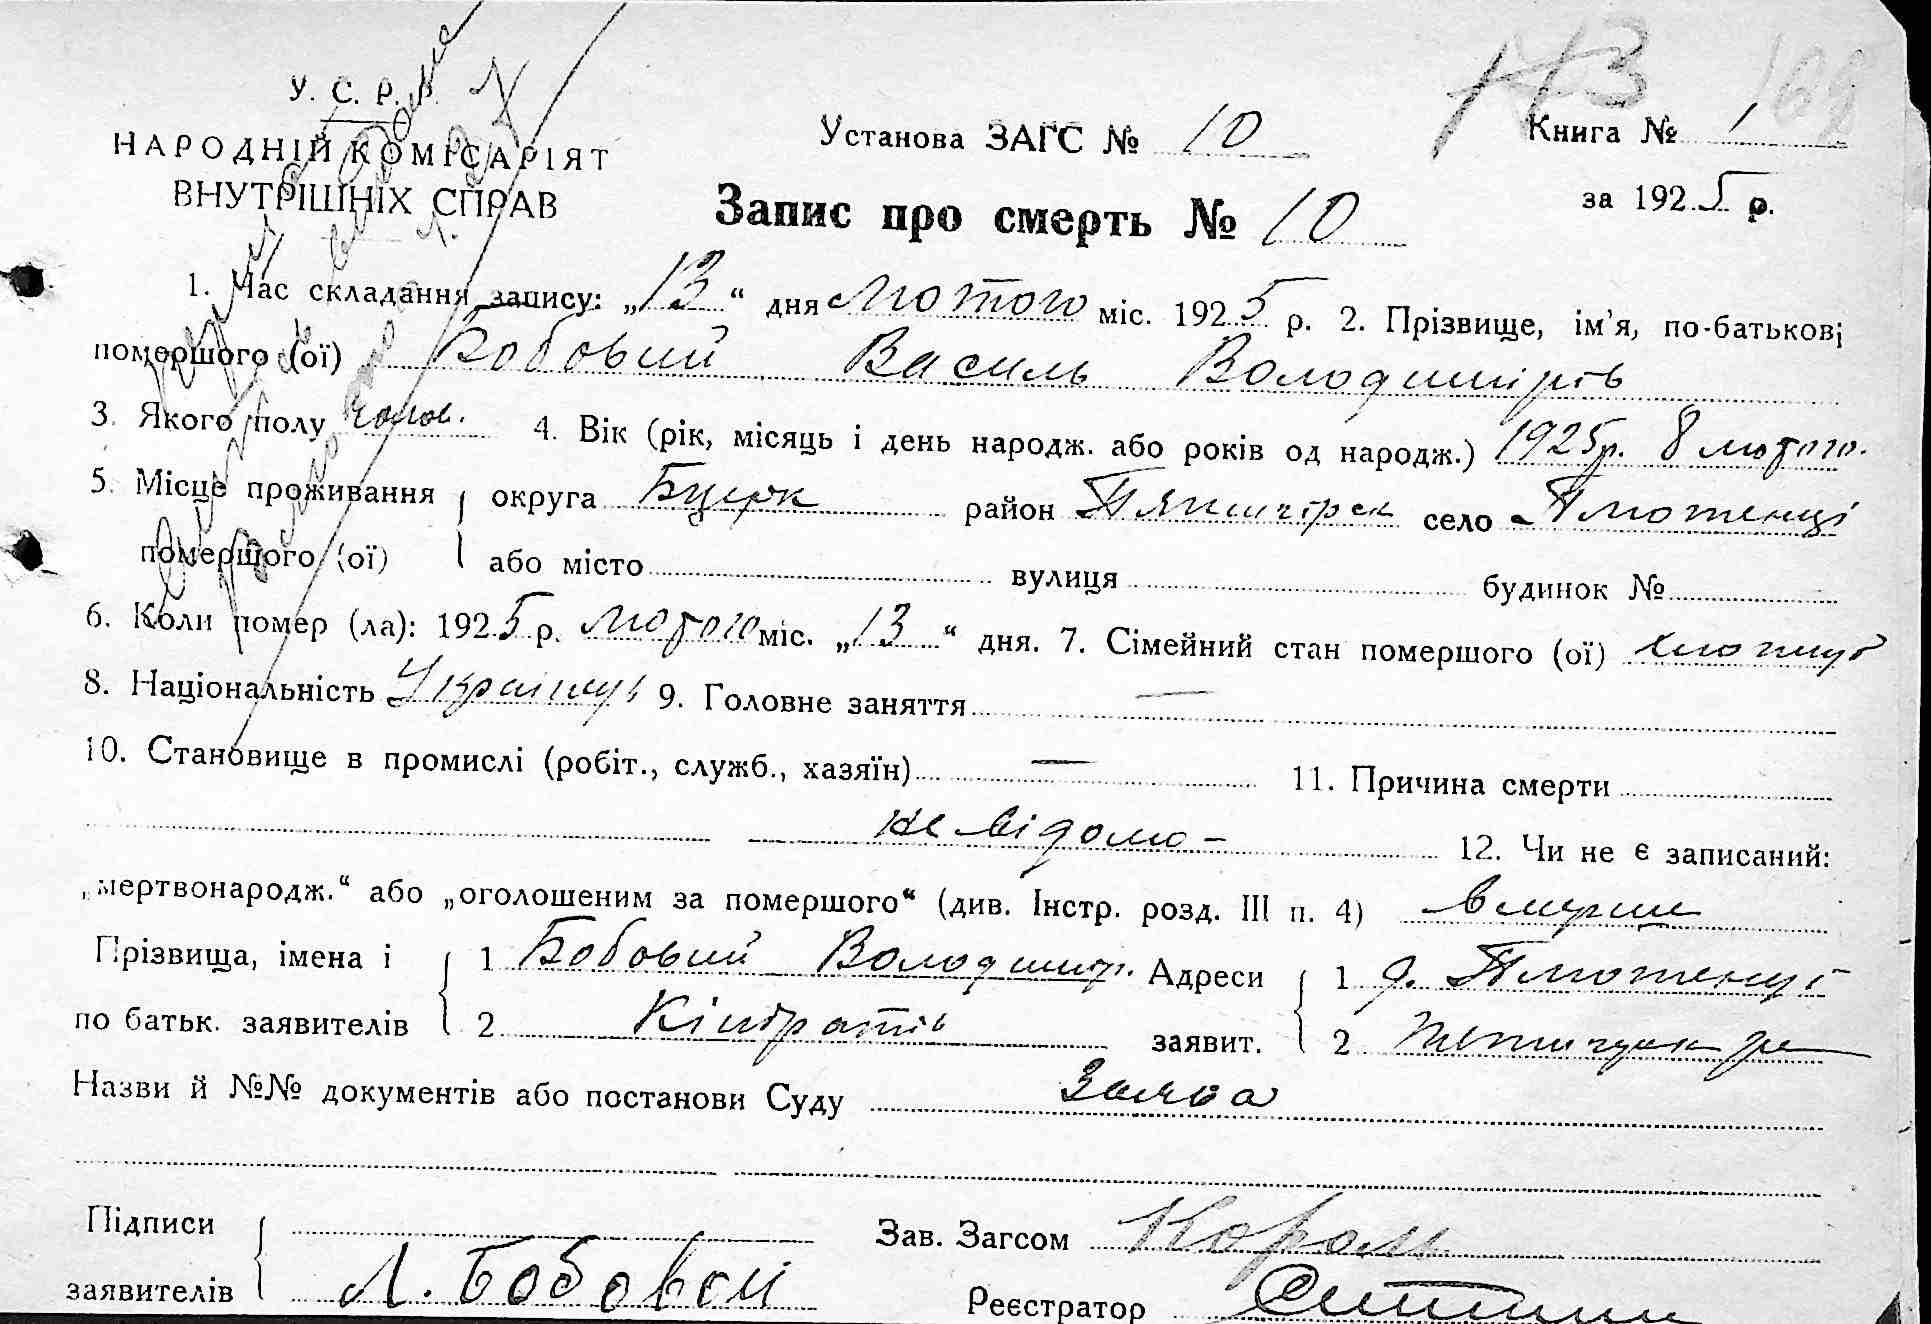 У. С. Р. Р.
НАРОДНІЙ КОМІСАРІЯТ
ВНУТРІШНІХ СПРАВ
Установа ЗАГС № 10
Книга № 1
за 1925 р.
Запис про смерть № 10
1. Час складання запису: „13“ дня лютого міс. 1925 р. 2. Прізвище, ім'я, по-батькові
помершого (ої) Бобовий Василь Володимирів
3. Якого полу чолов. 4. Вік (рік, місяць і день народж. або років од народж.) 1925р. 8 лютого.
5. Місце проживання помершого (ої) округа Бцерк район село Плютенці
або місто вулиця будинок №
6. Коли помер (ла): 1925 р. лютого міс. „13“ дня. 7. Сімейний стан помершого (ої)
8. Національність 9. Головне заняття —
10. Становище в промислі (робіт., служб., хазяїн) — 11. Причина смерти
не відомо - 12. Чи не є записаний:
„мертвонародж.“ або „оголошеним за помершого“ (див. Інстр. розд. III п. 4)
Прізвища, імена і по батьк. заявителів 1 Бобовий Володимир. Адреси заявит. 1 Плютенці
2 Кіндратів 2
Назви й №№ документів або постанови Суду Заява
Підписи заявителів Л. Бобовой
Зав. Загсом Король
Реєстратор